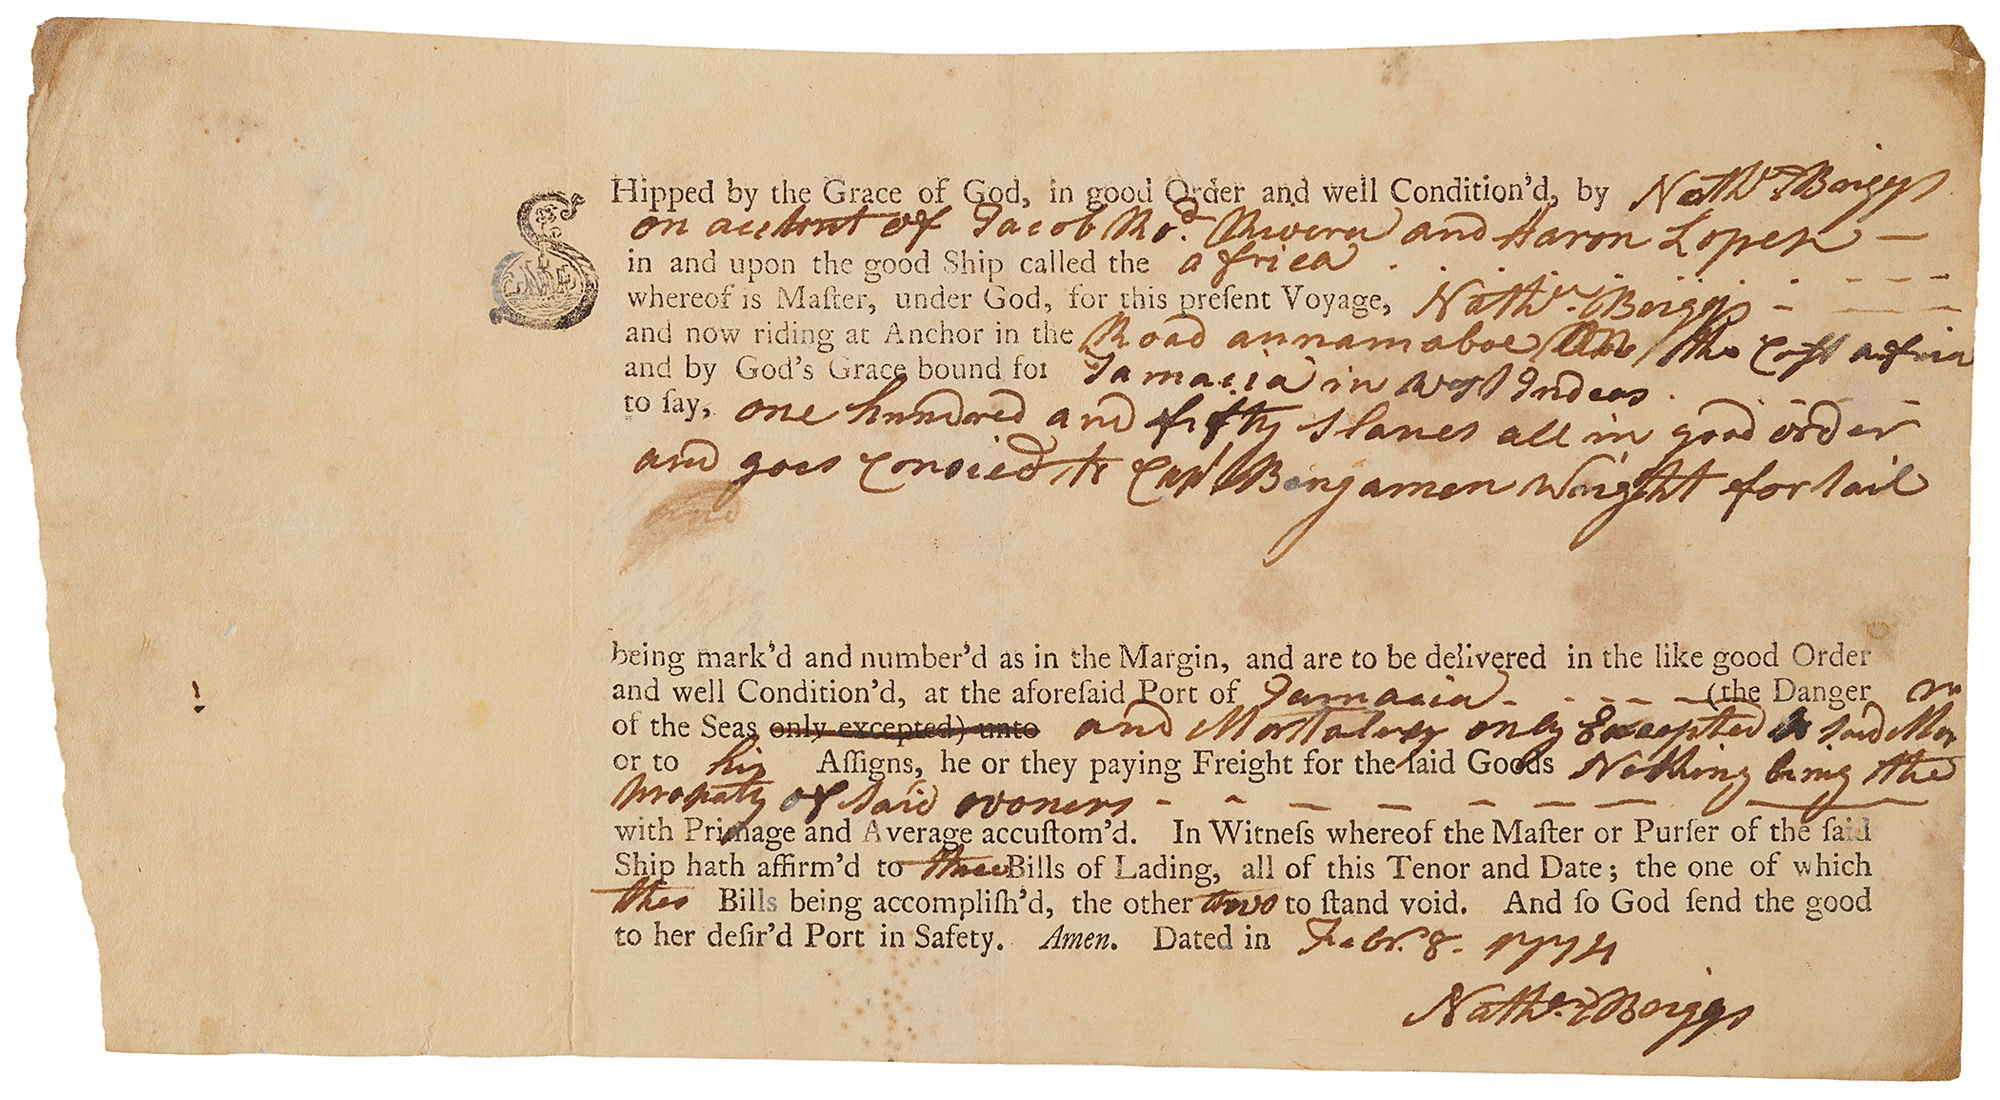 SHipped by the Grace of God, in good Order and well Condition'd, by Nathl. Briggs
on account of Jacob Rod. Rivera and Aaron Lopez —
in and upon the good Ship called the africa
whereof is Maſter, under God, for this preſent Voyage, Nathl. Briggs
and now riding at Anchor in the Road annamaboe the Cost africa
and by God's Grace bound for Jamacia in West Indeas.
to ſay, one hundred and fifty Slaves all in good order
and goes Consied to Capt Benjamen Wright for Sail
being mark'd and number'd as in the Margin, and are to be delivered in the like good Order
and well Condition'd, at the aforeſaid Port of Jamacia (the Danger
of the Seas only excepted) unto and Mortalety only Excepted said
or to his Aſſigns, he or they paying Freight for the ſaid Goods Nothing being the
Propaty of Said owners
with Primage and Average accuſtom'd. In Witneſs whereof the Maſter or Purſer of the ſaid
Ship hath affirm'd to three Bills of Lading, all of this Tenor and Date; the one of which
thes Bills being accompliſh'd, the other two to ſtand void. And ſo God ſend the good
to her deſir'd Port in Safety. Amen. Dated in Febr. 8. 1774
Nathl. Briggs